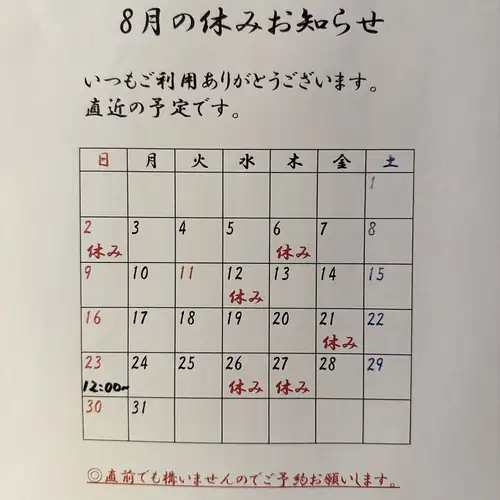 8月の休みお知らせ
いつもご利用ありがとうございます。
直近の予定です。
日 月 火 水 木 金 土
1
2 3 4 5 6 7 8
休み 休み
9 10 11 12 13 14 15
休み
16 17 18 19 20 21 22
休み
23 24 25 26 27 28 29
12:00~ 休み 休み
30 31
◎直前でも構いませんのでご予約お願いします。